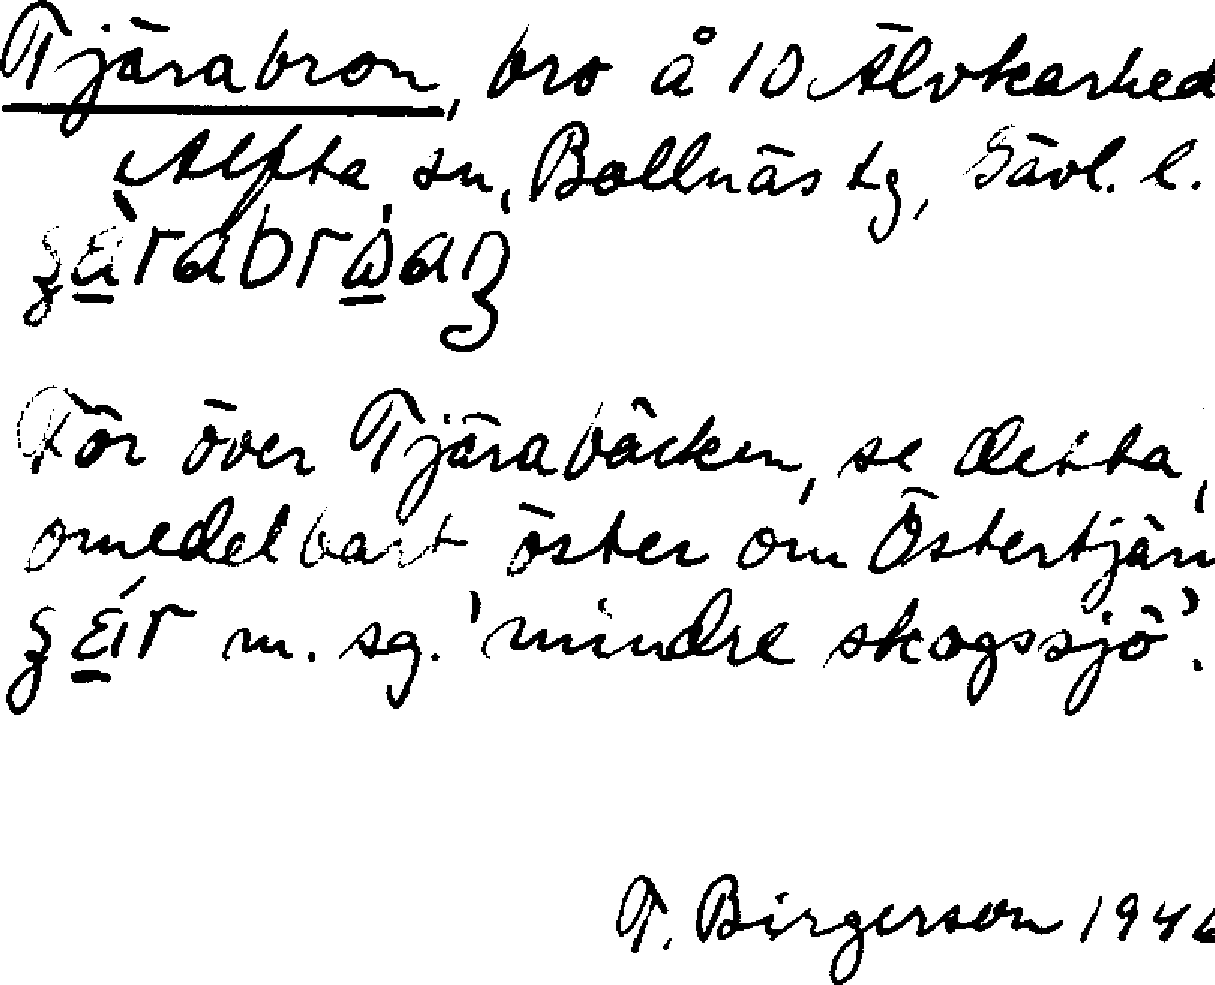 Tjärabron, bro å 10 Älvkarhed
Alfta sn, Bollnäs tg, Gävl. l.
För över Tjärabäcken, se detta,
omedelbart öster om Östertjärn
m. sg. 'mindre skogssjö'.
T. Birgerson 1946